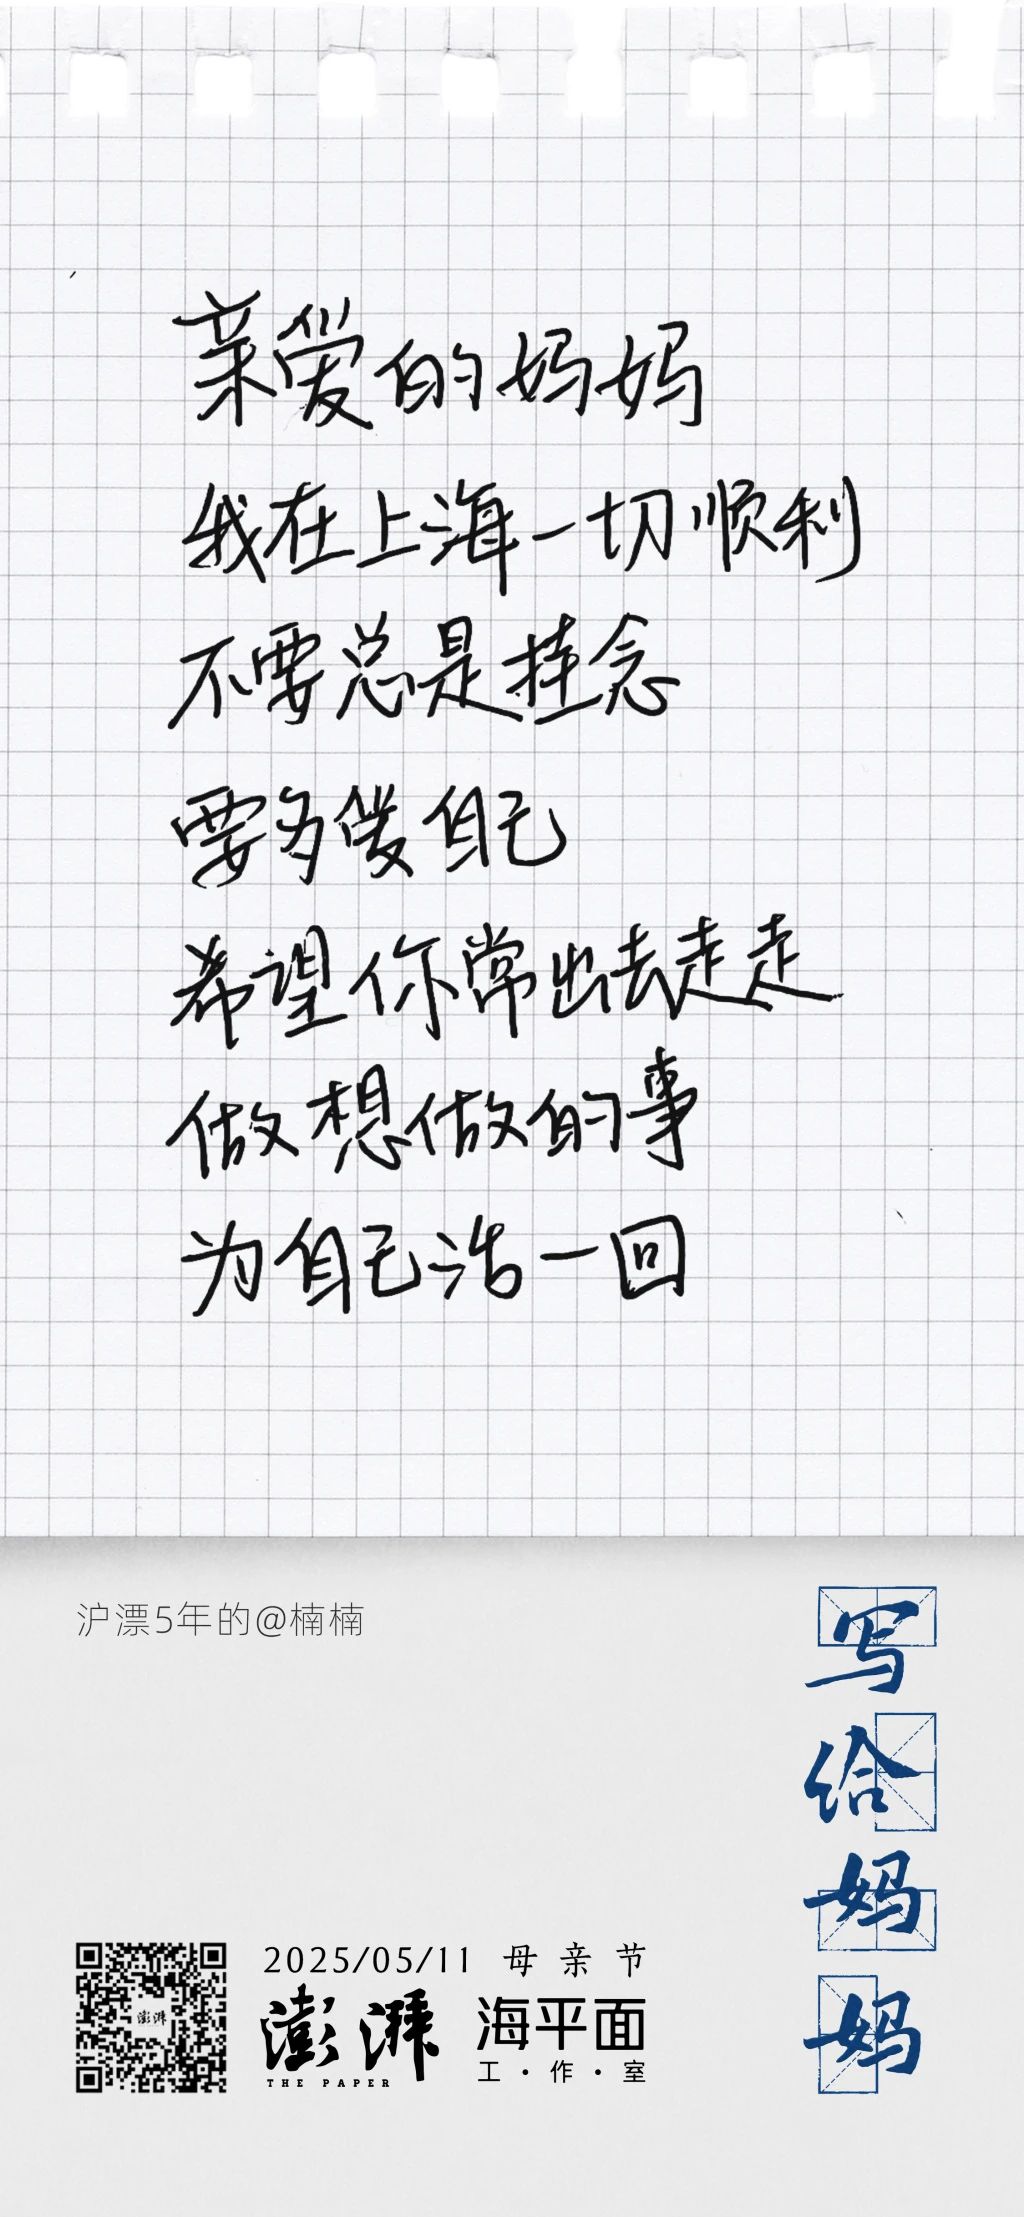 亲爱的妈妈
我在上海一切顺利
不要总是挂念
要多爱自己
希望你常出去走走
做想做的事
为自己活一回
沪漂5年的@楠楠
写给妈妈
2025/05/11 母亲节
澎湃
THE PAPER
海平面
工·作·室
澎湃